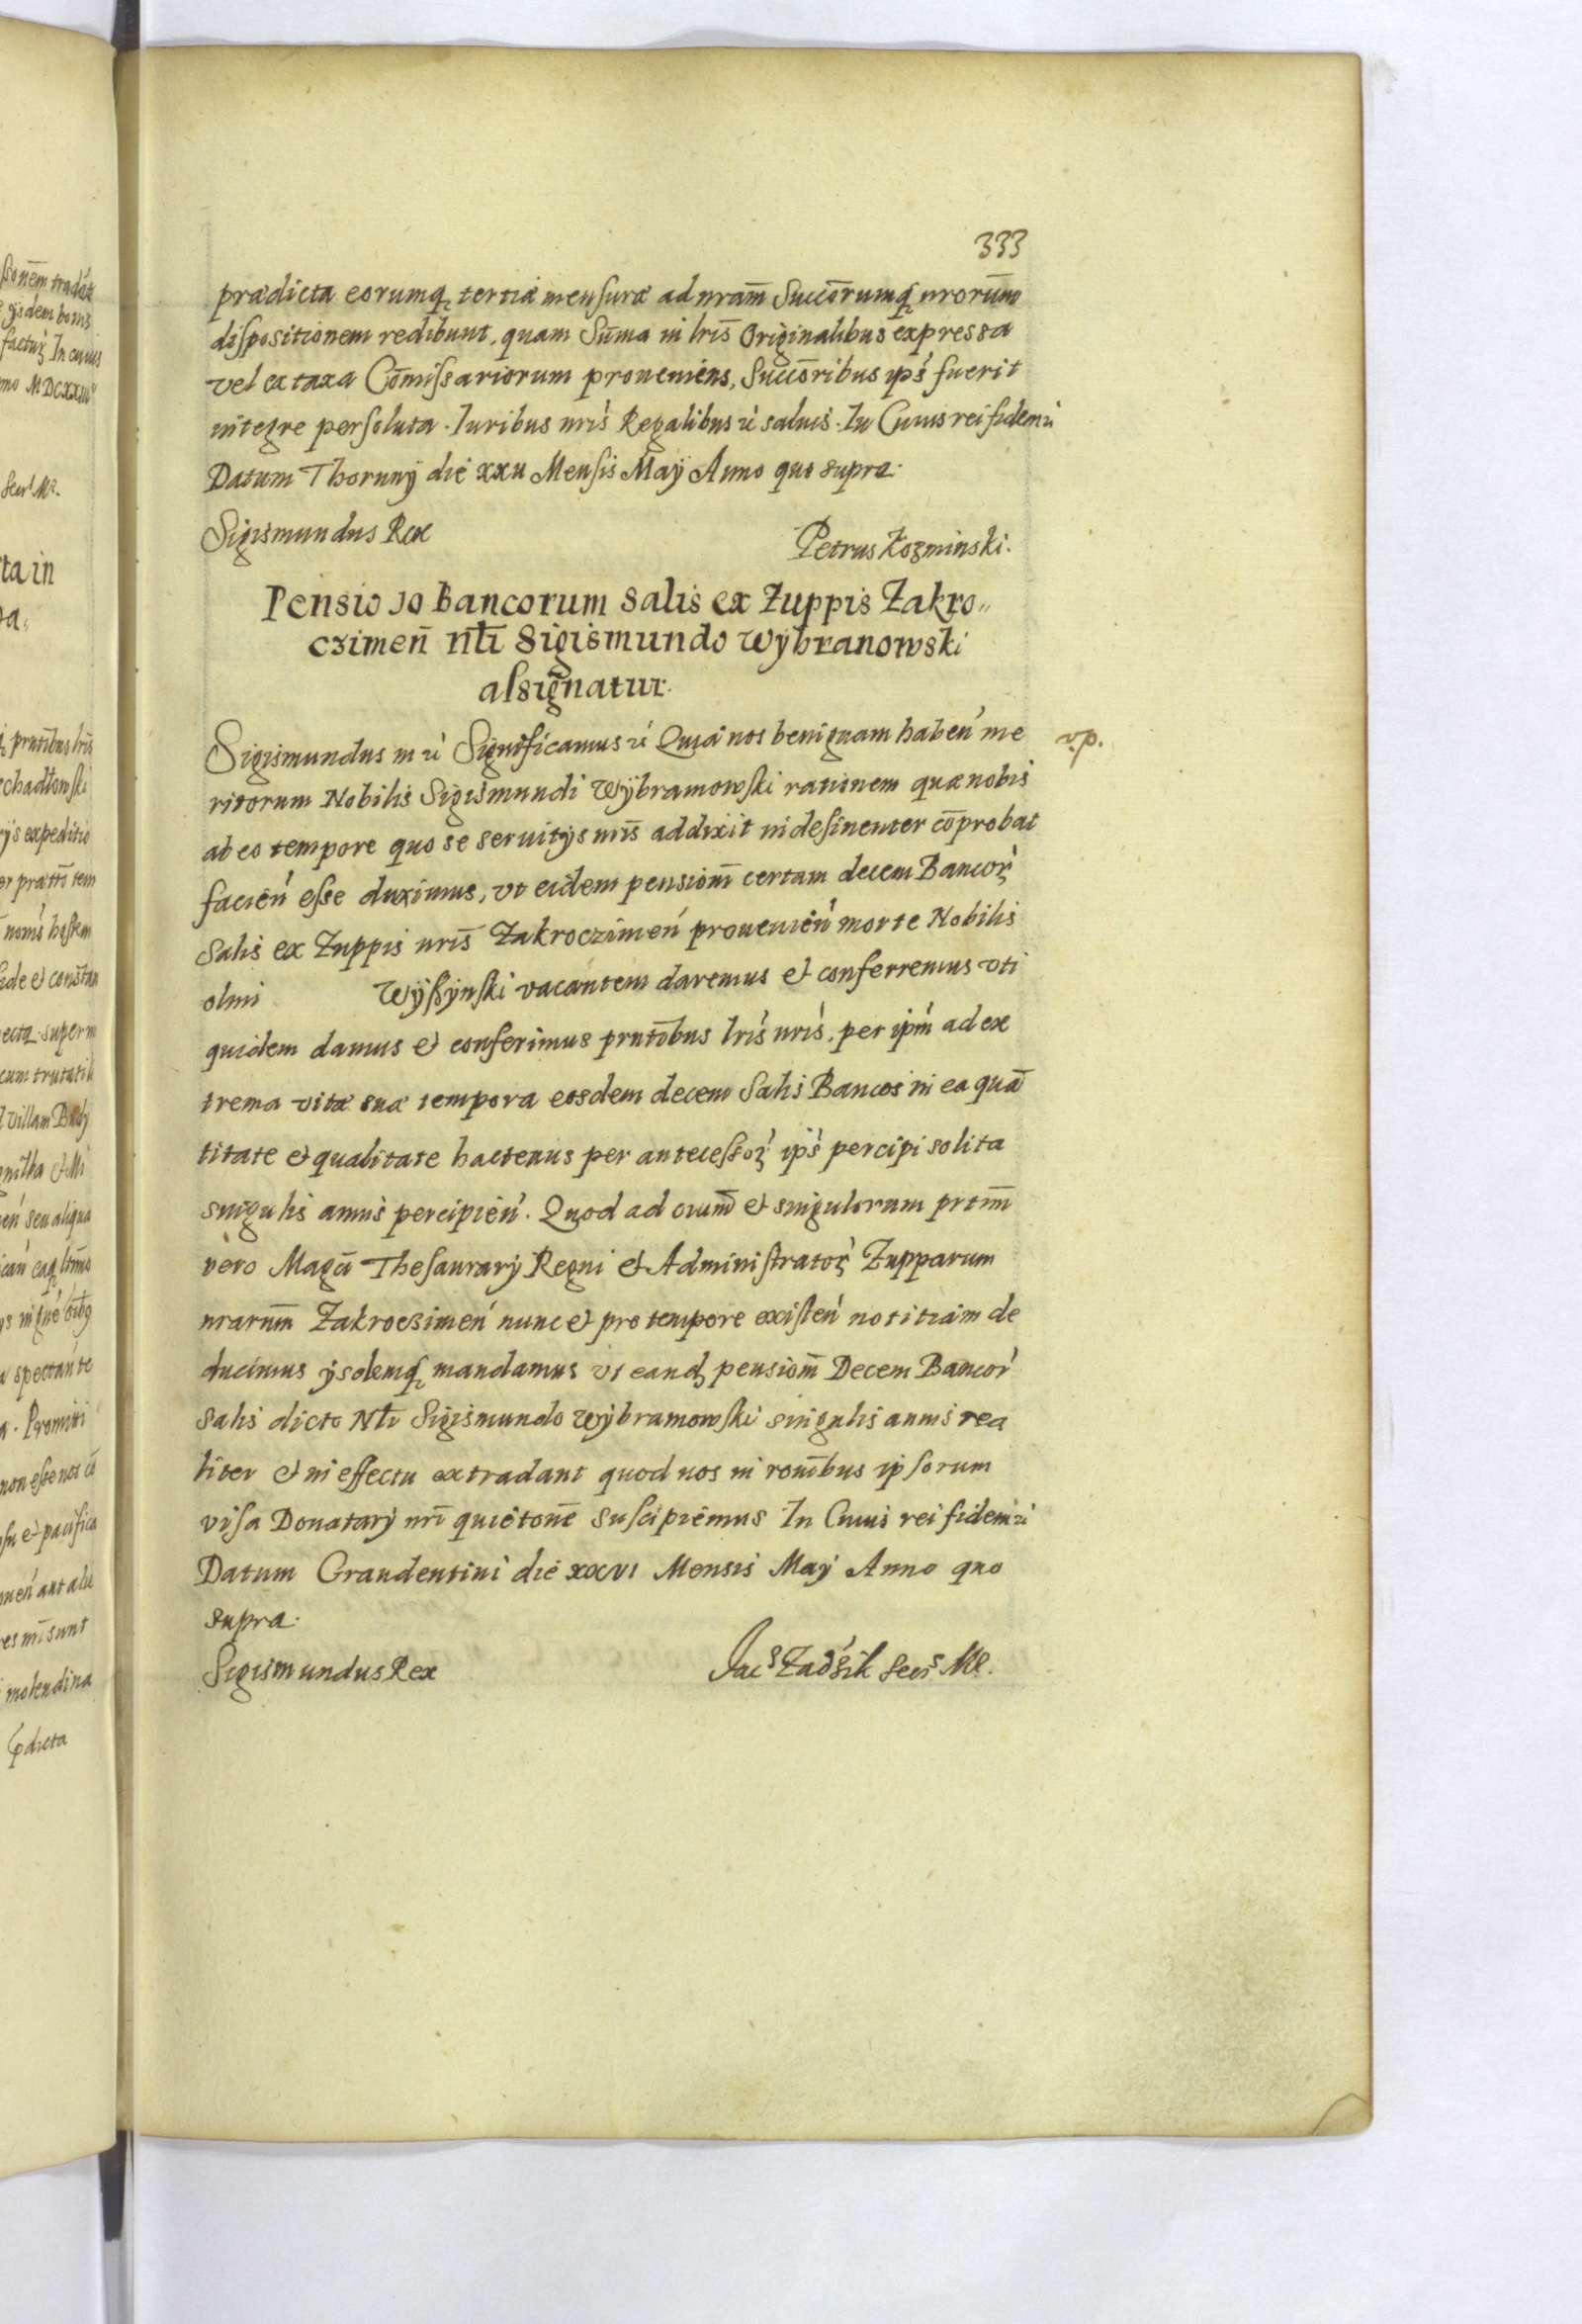 333
prædicta eorumq, tertiæ mensuræ ad nram̄ Succōrumq, nrorum̄
dispositionem redibunt, quam Sūma in lris̄ Originalibus expressa
vel ex taxa Cōmissariorum proveniens, Succōribus ips' fuerit
integre persoluta. Iuribus nris̄ Regalibus etc salvis. In Cuius rei fidem etc
Datum Thorunÿ die xxv Mensis Maÿ Anno quo supra.
Sigismundus Rex
Petrus Kozminski.
Pensio 10 Bancorum Salis ex Zuppis Zakro„
czimen̄ Nli̅ Sigismundo Wÿbranowski
assignatur.
Sigismundus III etc Significamus etc Quia nos benignam haben' me
v.p.
ritorum Nobilis Sigismundi Wÿbramowski rationem quæ nobis
ab eo tempore quo se servitÿs nris̄ addixit indesinenter cōprobat
facien' esse duximus, vt eidem pensionm̄ certam decem Bancor'
Salis ex Zuppis nris̄ Zakroczimen' provenien' morte Nobilis
olim Wÿssÿnski vacantem daremus et conferremus vti
quidem damus et conferimus prntib̄us lris' nris', per ipm̄ ad ex
trema vitæ suæ tempora eosdem decem Salis Bancos in ea quā
titate et qualitate hactenus per antecessor' ips' percipi solita
singulis annis percipien'. Quod ad oium̄ et singulorum prtim̄
vero Magci̅ Thesaurarÿ Regni et Administrator' Zupparum
nrarum̄ Zakroczimen' nunc et pro tempore existen' notitiam de
ducimus ÿsdemq, mandamus vt eand, pensionm̄ Decem Bancor'
Salis dicto Nli̅ Sigismundo Wÿbramowski singulis annis rea
liter et in effectu extradant quod nos in ronib̄us ipsorum
visa Donatarÿ nri̅ quietone̅ suscipiemus In Cuius rei fidem etc
Datum Graudentini die xxvi Mensis Maÿ Anno quo
supra.
Sigismundus Rex
Jacs Zadzik Secrs MR.